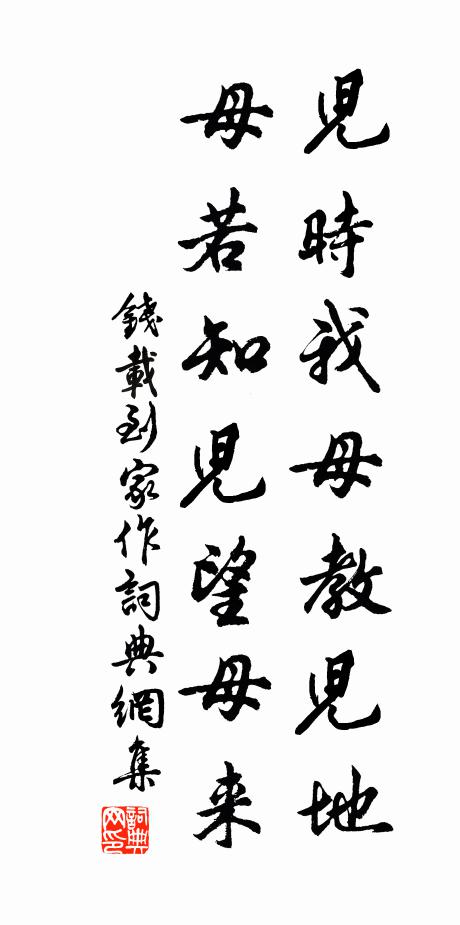 兒時我母教兒地
母若知兒望母来
錢載到家作詞典網集
詞典網印